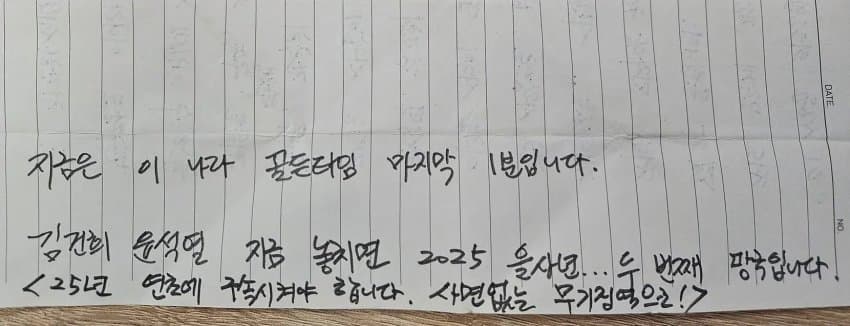 지금은 이 나라 골든타임 마지막 1분입니다.
김건희 윤석열 지금 놓치면 2025 을사년... 두 번째 망국입니다.
<25년 연초에 구속시켜야 합니다. 사면없는 무기징역으로!>
DATE
NO